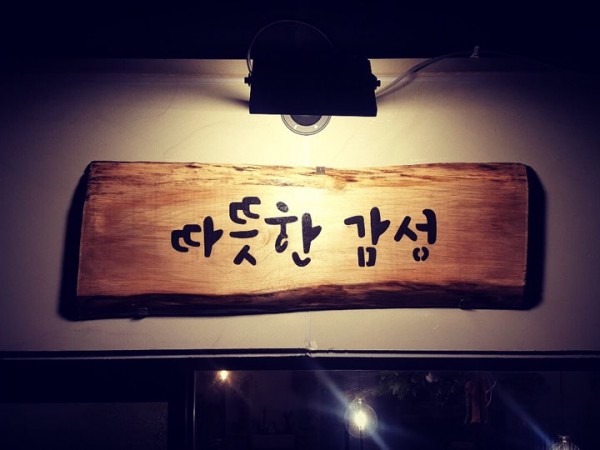 따뜻한 감성